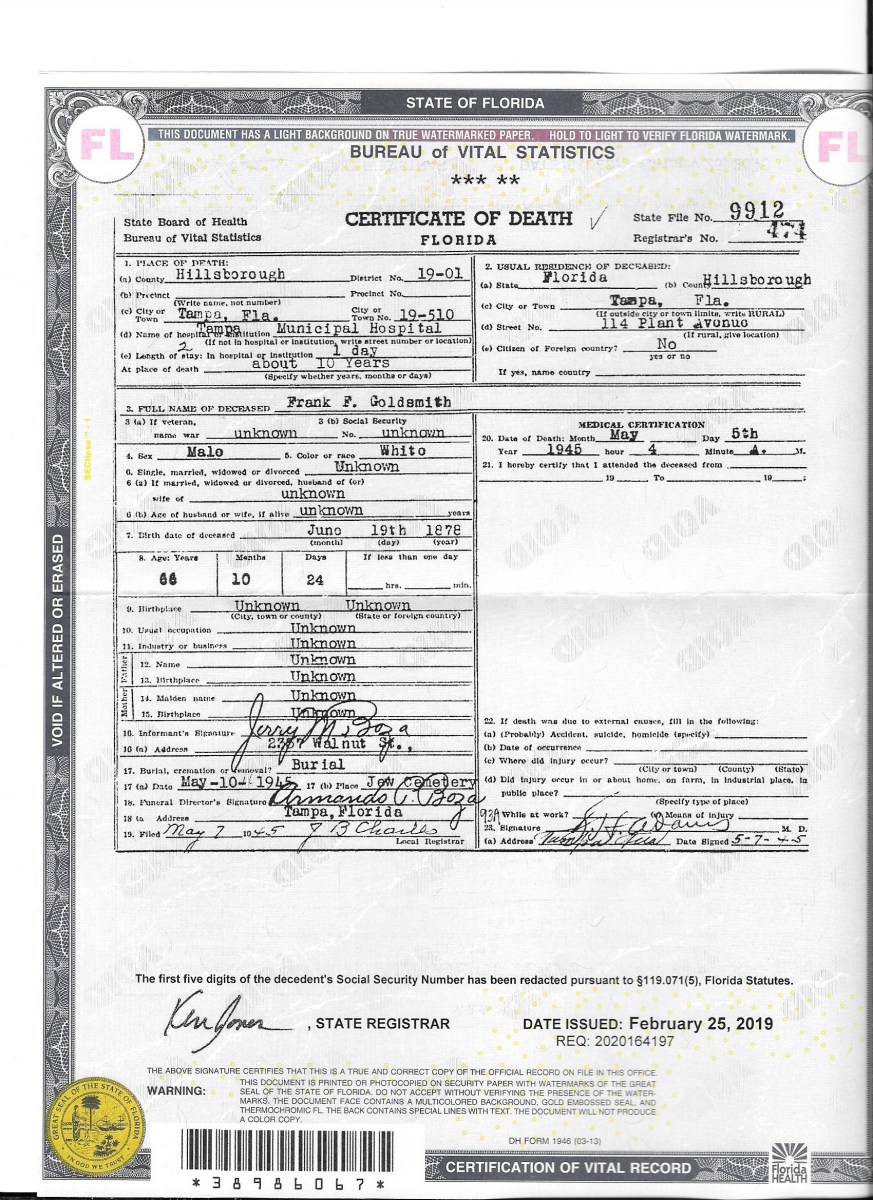 STATE OF FLORIDA
FL
FL
THIS DOCUMENT HAS A LIGHT BACKGROUND ON TRUE WATERMARKED PAPER. HOLD TO LIGHT TO VERIFY FLORIDA WATERMARK.
BUREAU of VITAL STATISTICS
*** **
State Board of Health
Bureau of Vital Statistics
CERTIFICATE OF DEATH
FLORIDA
State File No. 9912
Registrar's No. 474
1. PLACE OF DEATH:
(a) County Hillsborough District No. 19-01
(b) Precinct Precinct No.
(Write name, not number)
(c) City or Town Tampa, Fla. City or Town No. 19-510
(d) Name of hospital or institution Tampa Municipal Hospital
(If not in hospital or institution, write street number or location)
2
(e) Length of stay: In hospital or institution 1 day
At place of death about 10 Years
(Specify whether years, months or days)
2. USUAL RESIDENCE OF DECEASED:
(a) State Florida (b) County Hillsborough
(c) City or Town Tampa, Fla.
(If outside city or town limits, write RURAL)
(d) Street No. 114 Plant Avenue
(If rural, give location)
(e) Citizen of Foreign country? No
yes or no
If yes, name country
3. FULL NAME OF DECEASED Frank F. Goldsmith
3 (a) If veteran, name war unknown
3 (b) Social Security No. unknown
4. Sex Male 5. Color or race White
6. Single, married, widowed or divorced Unknown
6 (a) If married, widowed or divorced, husband of (or)
wife of unknown
6 (b) Age of husband or wife, if alive unknown years
7. Birth date of deceased June 19th 1878
(month) (day) (year)
8. Age: Years Months Days If less than one day
66 10 24 hrs. min.
9. Birthplace Unknown Unknown
(City, town or county) (State or foreign country)
10. Usual occupation Unknown
11. Industry or business Unknown
Father
12. Name Unknown
13. Birthplace Unknown
Mother
14. Maiden name Unknown
15. Birthplace Unknown
16. Informant's Signature Jerry M. Boza
16 (a) Address 2307 Walnut St.,
17. Burial, cremation or removal? Burial
17 (a) Date May-10-1945 17 (b) Place Jew Cemetery
18. Funeral Director's Signature Armando P. Boza
18 (a) Address Tampa, Florida
19. Filed May 7 1945 J B Charles
Local Registrar
MEDICAL CERTIFICATION
20. Date of Death: Month May Day 5th
Year 1945 hour 4 Minute A. M.
21. I hereby certify that I attended the deceased from
19 To 19 ;
22. If death was due to external causes, fill in the following:
(a) (Probably) Accident, suicide, homicide (specify)
(b) Date of occurrence
(c) Where did injury occur?
(City or town) (County) (State)
(d) Did injury occur in or about home, on farm, in industrial place, in
public place?
(Specify type of place)
93A While at work? (e) Means of injury
23. Signature M. D.
(a) Address Tampa Fla Date Signed 5-7-45
VOID IF ALTERED OR ERASED
The first five digits of the decedent's Social Security Number has been redacted pursuant to §119.071(5), Florida Statutes.
Ken Jones , STATE REGISTRAR
DATE ISSUED: February 25, 2019
REQ: 2020164197
THE ABOVE SIGNATURE CERTIFIES THAT THIS IS A TRUE AND CORRECT COPY OF THE OFFICIAL RECORD ON FILE IN THIS OFFICE.
WARNING:
THIS DOCUMENT IS PRINTED OR PHOTOCOPIED ON SECURITY PAPER WITH WATERMARKS OF THE GREAT
SEAL OF THE STATE OF FLORIDA. DO NOT ACCEPT WITHOUT VERIFYING THE PRESENCE OF THE WATER-
MARKS. THE DOCUMENT FACE CONTAINS A MULTICOLORED BACKGROUND, GOLD EMBOSSED SEAL, AND
THERMOCHROMIC FL. THE BACK CONTAINS SPECIAL LINES WITH TEXT. THE DOCUMENT WILL NOT PRODUCE
A COLOR COPY.
GREAT SEAL OF THE STATE OF FLORIDA
IN GOD WE TRUST
DH FORM 1946 (03-13)
*38986067*
CERTIFICATION OF VITAL RECORD
Florida
HEALTH